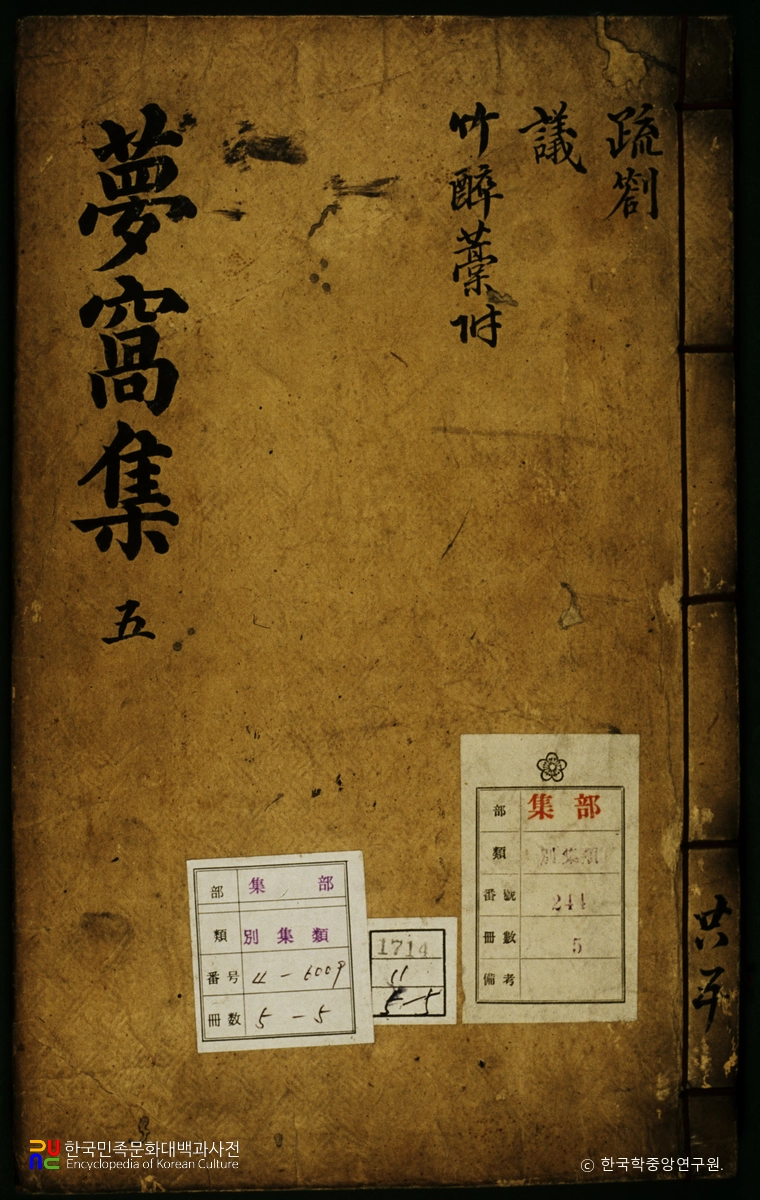 疏劄
議
竹醉藁附
夢窩集 五
部 集部
類 別集類
番號 244
冊數 5
備考
部 集部
類 別集類
番号 4-6009
冊数 5-5
1714
11
5-5
한국민족문화대백과사전
Encyclopedia of Korean Culture
ⓒ 한국학중앙연구원.